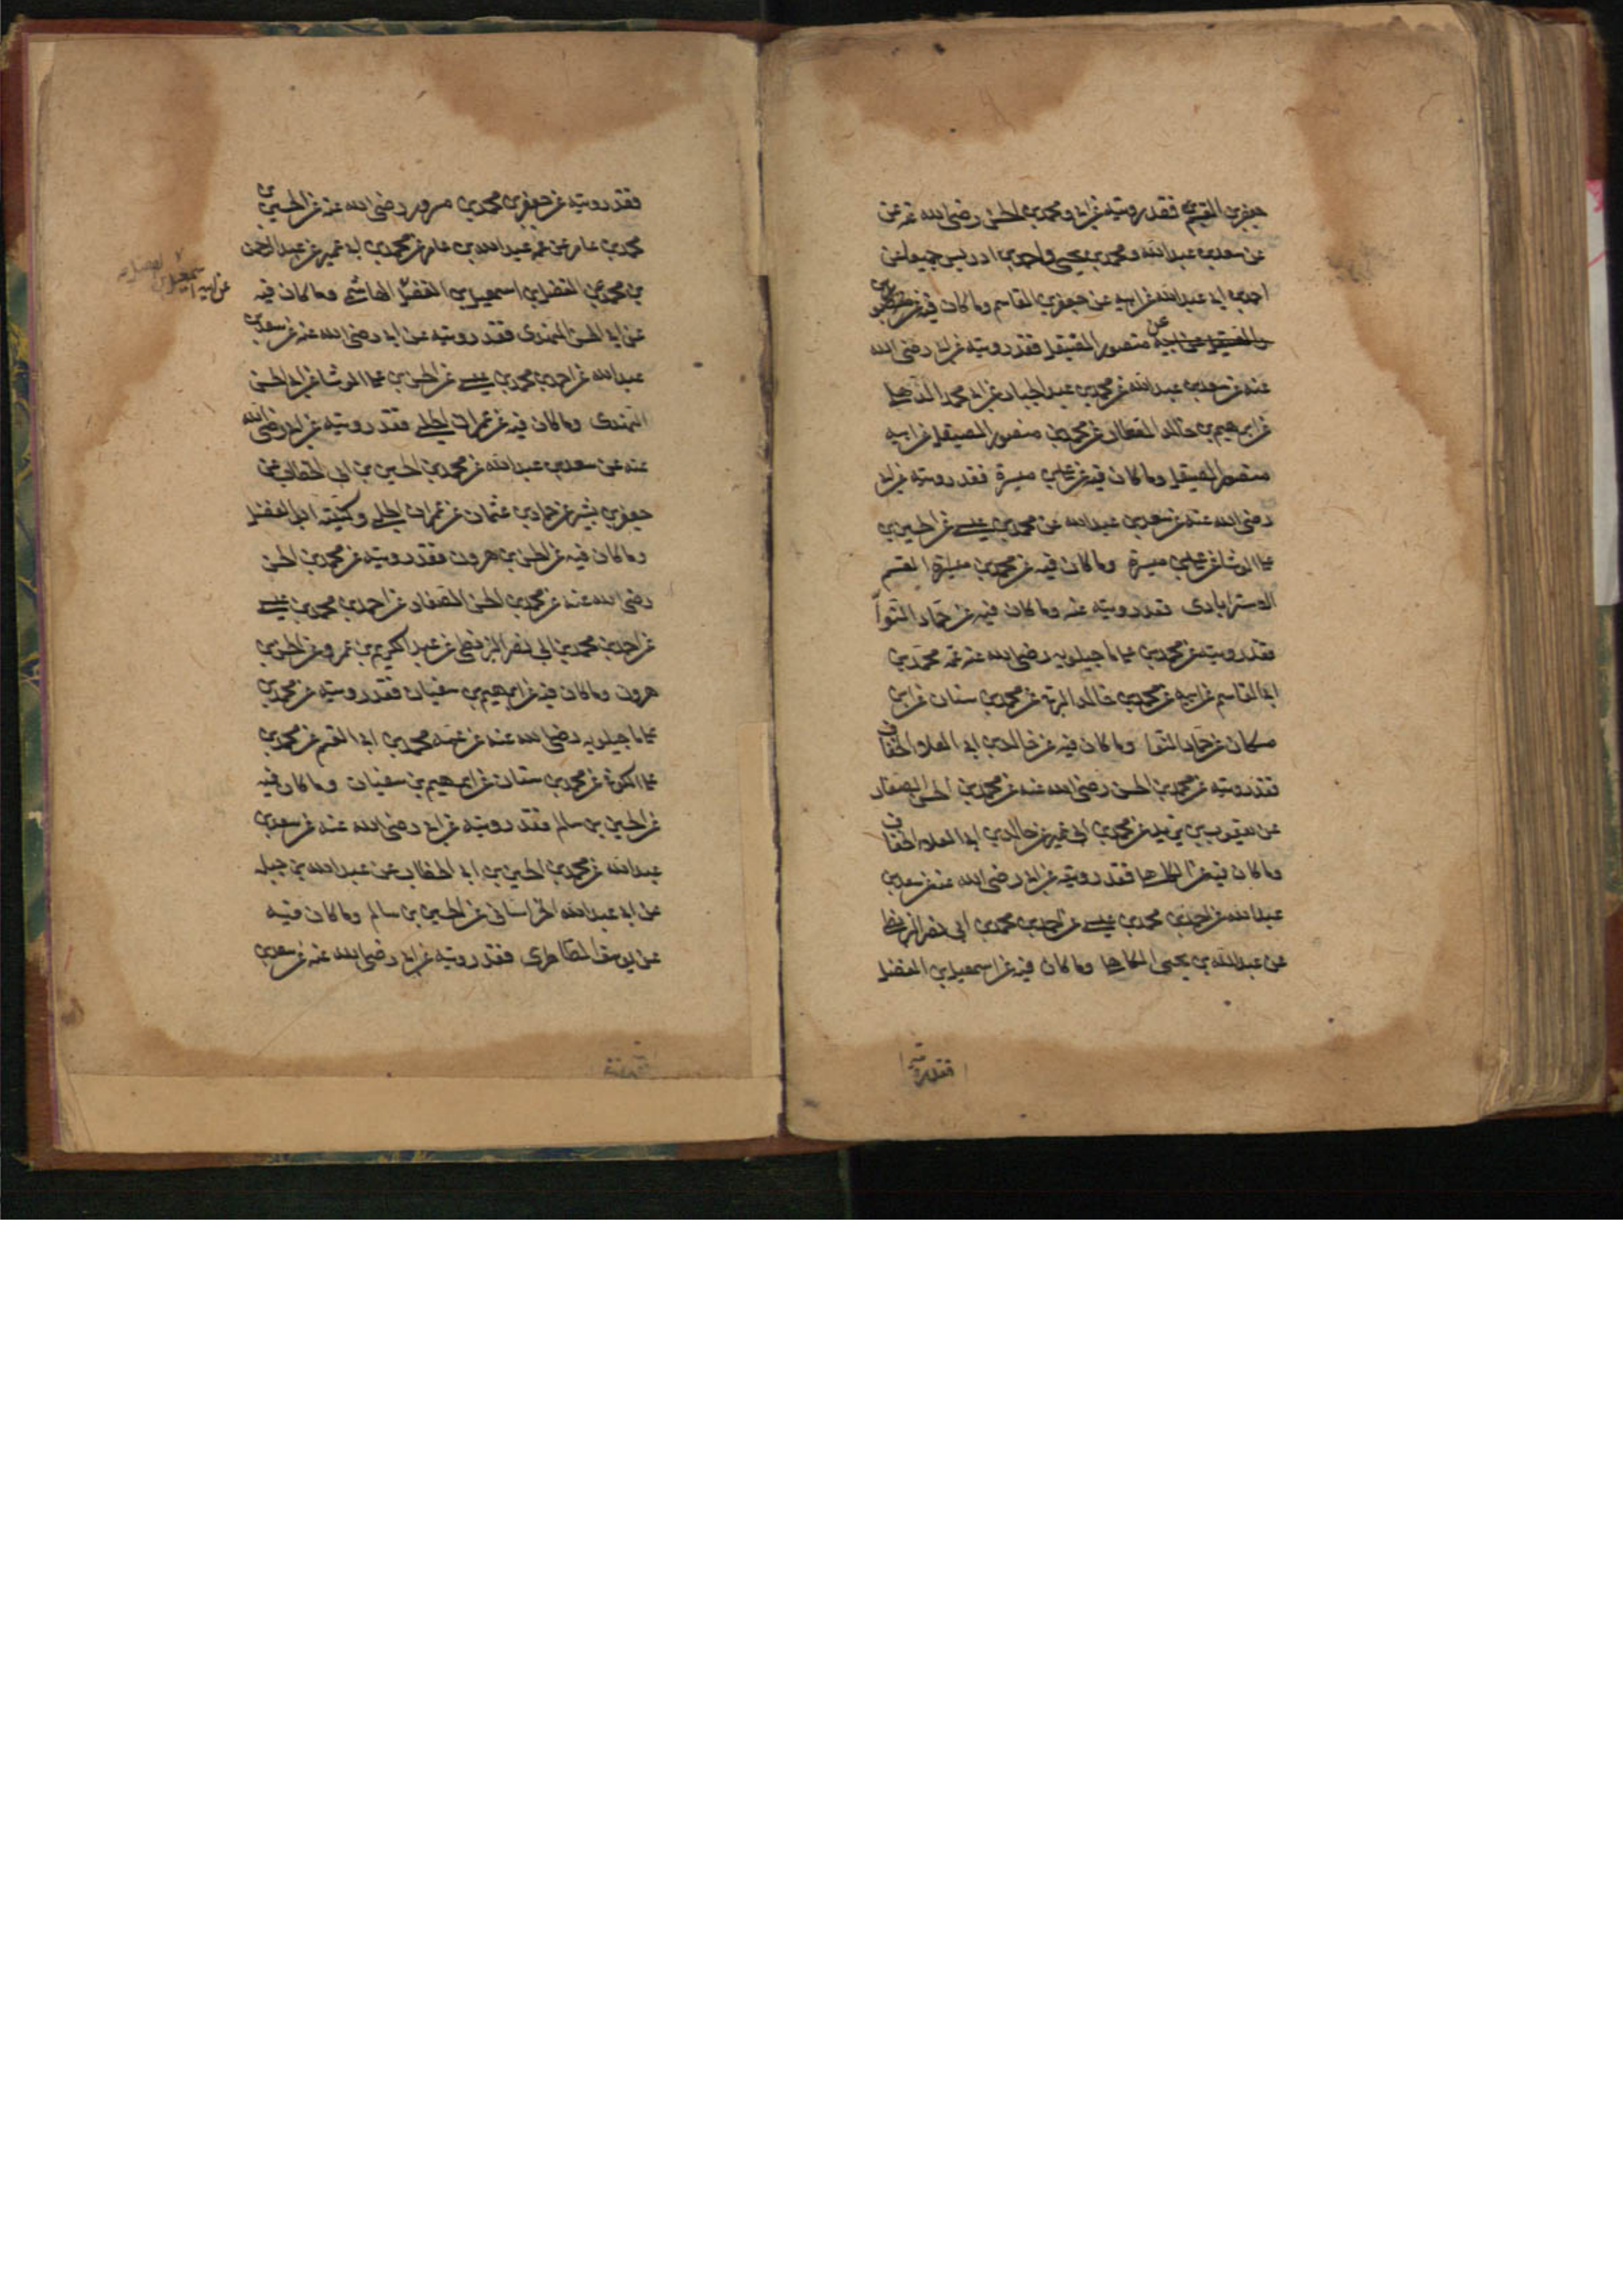 جعفر بن القسم فقد رويته عن ابى ومحمد بن الحسن رضى الله عنه عن
عن سعد بن عبدالله ومحمد بن يحيى واحمد بن ادريس جميعا عن
احمد بن ابى عبدالله عن ابيه عن جعفر بن القاسم وما كان فيه عن
الصيقل عن ابيه منصور الصيقل فقد رويته عن ابى رضى الله
عنه عن سعد بن عبدالله عن محمد بن عبد الجبار عن ابى محمد الذهلى
عن ابرهيم بن خالد العطار عن محمد بن منصور الصيقل عن ابيه
منصور الصيقل وما كان فيه عن على بن ميسرة فقد رويته عن ابى
رضى الله عنه عن سعد بن عبدالله عن محمد بن عيسى عن الحسين بن
على الوشا عن على بن ميسرة وما كان فيه عن محمد بن القسم
الاسترابادى فقد رويته عنه وما كان فيه عن حماد النوا
فقد رويته عن محمد بن على ماجيلويه رضى الله عنه عن عمه محمد بن
ابى القاسم عن ابيه عن محمد بن خالد البرقى عن محمد بن سنان عن ابن
مسكان عن حماد النوا وما كان فيه عن خالد بن ابى العلاء الخفاف
فقد رويته عن محمد بن الحسن رضى الله عنه عن محمد بن الحسن الصفار
عن يعقوب بن يزيد عن محمد بن ابى عمير عن خالد بن ابى العلاء الخفاف
وما كان فيه عن الكاهلى فقد رويته عن ابى رضى الله عنه عن سعد بن
عبدالله عن احمد بن محمد بن عيسى عن احمد بن محمد بن ابى نصر البزنطى
عن عبدالله بن يحيى الكاهلى وما كان فيه عن اسمعيل بن الفضل
فقد رويته
فقد رويته عن جعفر بن محمد بن مسرور رضى الله عنه عن الحسين بن
محمد بن عامر عن عمه عبدالله بن عامر عن محمد بن ابى عمير عن عبدالرحمن
بن محمد عن الفضل بن اسمعيل بن الفضل الهاشمى وما كان فيه
عن ابيه اسمعيل بن
عن ابى الحسن النهدى فقد رويته عن ابى رضى الله عنه عن سعد بن
عبدالله عن احمد بن محمد بن عيسى عن الحسن بن على الوشا عن ابى الحسن
النهدى وما كان فيه عن عمران الحلبى فقد رويته عن ابى رضى الله
عنه عن سعد بن عبدالله عن محمد بن الحسين بن ابى الخطاب عن
جعفر بن بشير عن حماد بن عثمان عن عمران الحلبى وكنيته ابو الفضل
وما كان فيه عن الحسن بن هرون فقد رويته عن محمد بن الحسن
رضى الله عنه عن محمد بن الحسن الصفار عن احمد بن محمد بن عيسى
عن احمد بن محمد بن ابى نصر البزنطى عن عبد الكريم بن عمرو عن الحسن بن
هرون وما كان فيه عن ابرهيم بن سفيان فقد رويته عن محمد بن
على ماجيلويه رضى الله عنه عن عمه محمد بن ابى القسم عن محمد بن
على الكوفى عن محمد بن سنان عن ابرهيم بن سفيان وما كان فيه
عن الحسين بن سالم فقد رويته عن ابى رضى الله عنه عن سعد بن
عبدالله عن محمد بن الحسين بن ابى الخطاب عن عبدالله بن جبلة
عن ابى عبدالله الخراسانى عن الحسين بن سالم وما كان فيه
عن يوسف الطاطرى فقد رويته عن ابى رضى الله عنه عن سعد بن